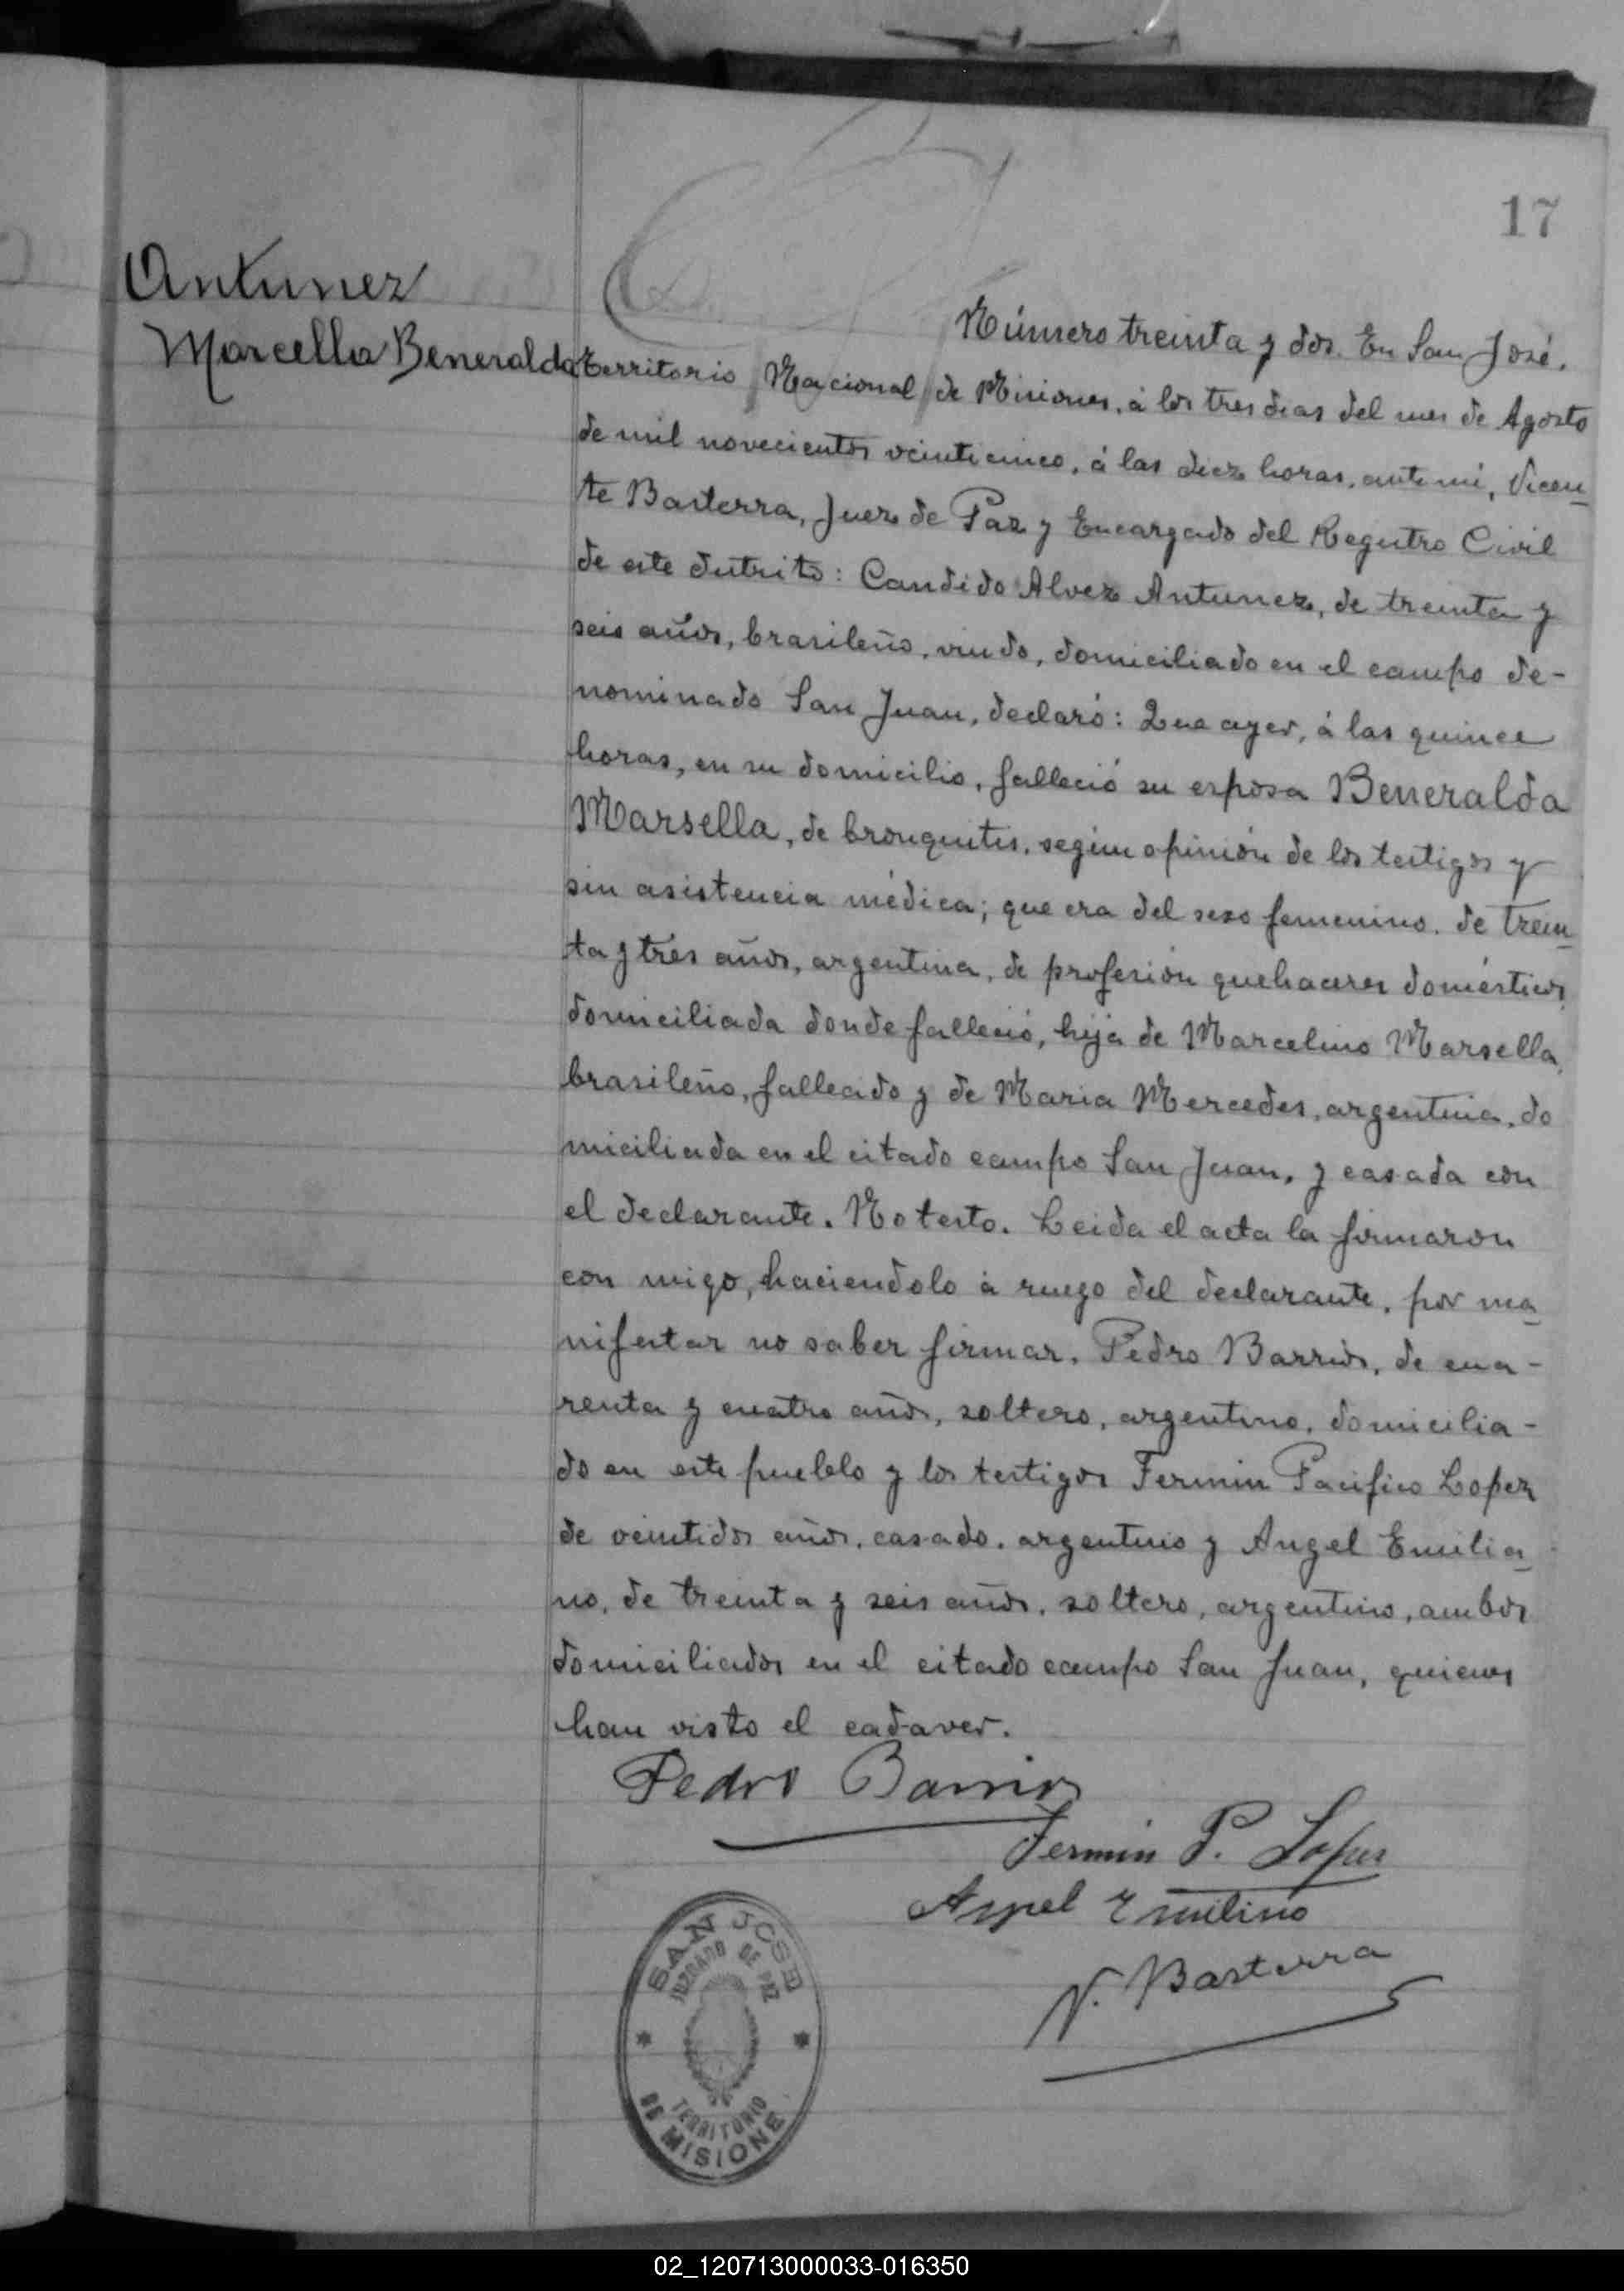 17
Antunez
Marcella Beneralda
Número treinta y dos. En San José,
territorio Nacional de Misiones, á los tres dias del mes de Agosto
de mil novecientos veinticinco, á las diez horas, ante mi, Vicen
te Basterra, Juez de Paz y Encargado del Registro Civil
de este distrito: Candido Alvez Antunez, de treinta y
seis años, brasileño, viudo, domiciliado en el campo de-
nominado San Juan, declaró: Que ayer, á las quince
horas, en su domicilio, falleció su esposa Beneralda
Marsella, de bronquitis, según opinión de los testigos y
sin asistencia médica; que era del sexo femenino, de trein
ta y tres años, argentina, de profesión quehaceres domésticos,
domiciliada donde falleció, hija de Marcelino Marsella,
brasileño, fallecido y de Maria Mercedes, argentina, do
miciliada en el citado campo San Juan, y casada con
el declarante. No testo. Leida el acta la firmaron
con migo, haciendolo á ruego del declarante, por ma
nifestar no saber firmar, Pedro Barrios, de cua-
renta y cuatro años, soltero, argentino, domicilia-
do en este pueblo y los testigos Fermin Pacifico Lopez
de veintidos años, casado, argentino y Angel Emilia
no, de treinta y seis años, soltero, argentino, ambos
domiciliados en el citado campo San Juan, quienes
han visto el cadaver.
Pedro Barrios
Fermin P. Lopez
Angel Emilino
V. Basterra
SAN JOSE
JUZGADO DE PAZ
TERRITORIO
DE MISIONE
02_120713000033-016350